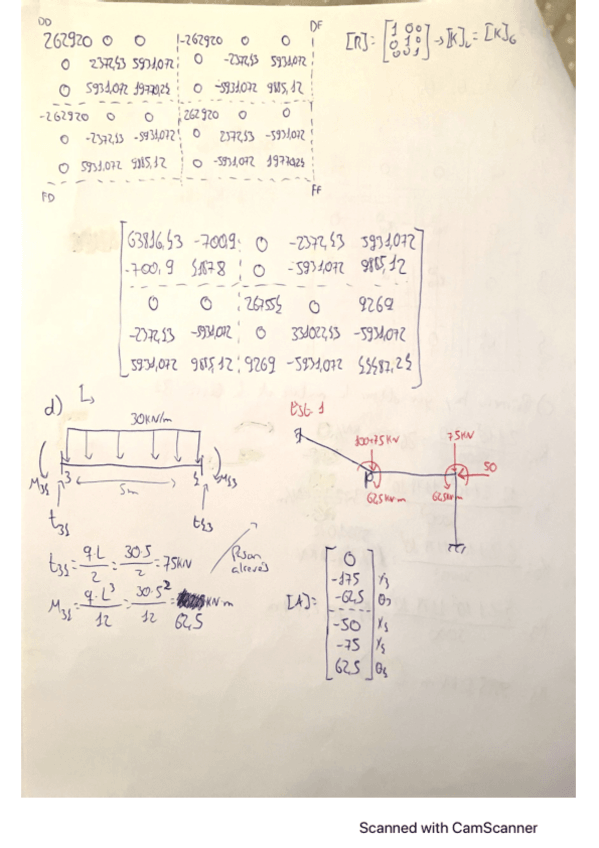 DD DF
262920 0 0 -262920 0 0
0 2372,53 5931,072 0 -2372,53 5931,072
0 5931,072 19770,25 0 -5931,072 9885,12
-262920 0 0 262920 0 0
0 -2372,53 -5931,072 0 2372,53 -5931,072
0 5931,072 9885,12 0 -5931,072 19770,25
FD FF
[R]= [1 0 0
0 1 0
0 0 1] → [K]L = [K]G
63816,53 -700,9 0 -2372,53 5931,072
-700,9 51878 0 -5931,072 9885,12
0 0 267554 0 9269
-2372,53 -5931,072 0 331022,53 -5931,072
5931,072 9885,12 9269 -5931,072 55487,25
d)
30KN/m
M35 3 5m 5 M53
t35 t53
t35 = q·L/2 = 30·5/2 = 75KN
M35 = q·L³/12 = 30·5²/12 = 62,5 KN·m
Pasan al revés
Est 1
100+75KN 75KN
50
62,5KN·m 62,5KN·m
[A]=
0
-175 Y3
-62,5 θ3
-50 X5
-75 Y5
62,5 θ5
Scanned with CamScanner